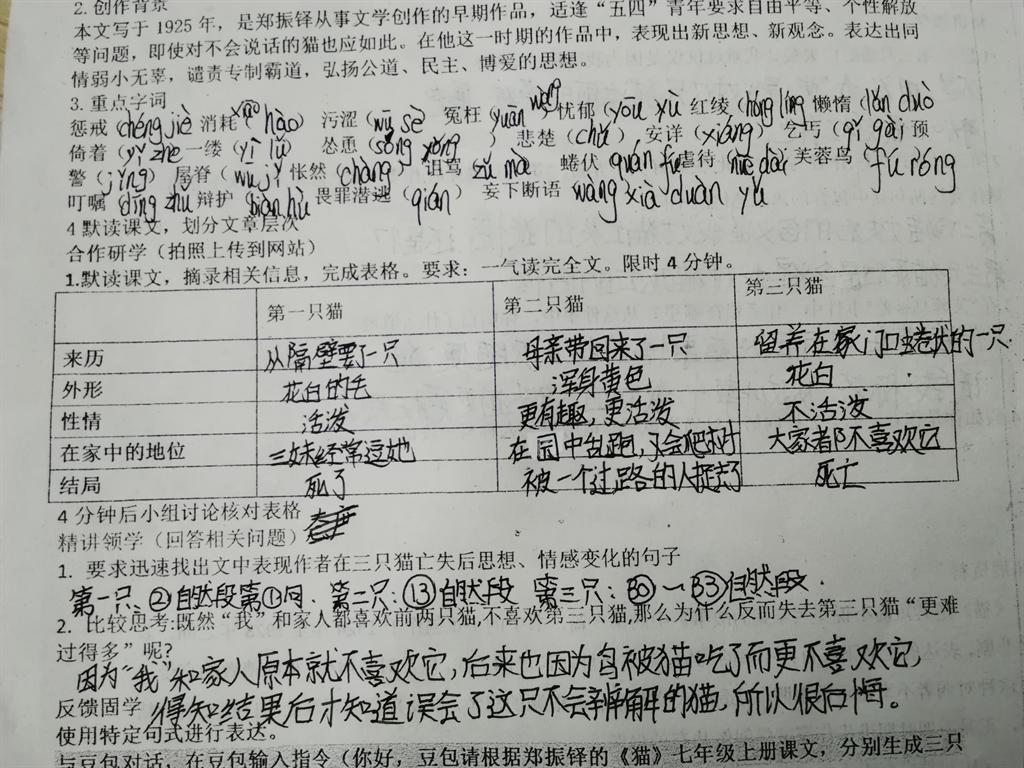 2. 创作背景
本文写于 1925 年，是郑振铎从事文学创作的早期作品，适逢“五四”青年要求自由平等、个性解放
等问题，即使对不会说话的猫也应如此。在他这一时期的作品中，表现出新思想、新观念。表达出同
情弱小无辜，谴责专制霸道，弘扬公道、民主、博爱的思想。
3. 重点字词
惩戒（chéng jiè 消耗（xiāo hào） 污涩（wū sè 冤枉（yuān wǎng 忧郁（yōu yù 红绫（hóng líng 懒惰（lǎn duò
倚着（yǐ zhe 一缕（yī lǚ） 怂恿（sǒng yǒng ） 悲楚（chǔ ） 安详（xiáng） 乞丐（qǐ gài 预
警（jǐng） 屋脊（wū jǐ 怅然（chàng） 诅骂 zǔ mà 蜷伏 quán fú 虐待 nüè dài 芙蓉鸟（fú róng
叮嘱 dīng zhǔ 辩护 biàn hù 畏罪潜逃（qián） 妄下断语 wàng xià duàn yǔ
4 默读课文，划分文章层次
合作研学（拍照上传到网站）
1.默读课文，摘录相关信息，完成表格。要求：一气读完全文。限时 4 分钟。
第一只猫 第二只猫 第三只猫
来历 从隔壁要了一只 母亲带回来了一只 留养在家门口蜷伏的一只
外形 花白的毛 浑身黄色 花白
性情 活泼 更有趣，更活泼 不活泼
在家中的地位 三妹经常逗她 在园中乱跑，又会爬树 大家都不喜欢它
结局 死了 被一个过路的人捉去了 死亡
4 分钟后小组讨论核对表格
精讲领学（回答相关问题）
1. 要求迅速找出文中表现作者在三只猫亡失后思想、情感变化的句子
第一只：②自然段第①句. 第二只：⑬自然段 第三只：㉚～㉝自然段.
2. 比较思考:既然“我”和家人都喜欢前两只猫,不喜欢第三只猫,那么为什么反而失去第三只猫“更难
过得多”呢?
因为“我”和家人原本就不喜欢它，后来也因为鸟被猫吃了而更不喜欢它，
反馈固学 得知结果后才知道误会了这只不会辩解的猫，所以很后悔。
使用特定句式进行表达。
与豆包对话，在豆包输入指令（你好，豆包请根据郑振铎的《猫》七年级上册课文，分别生成三只